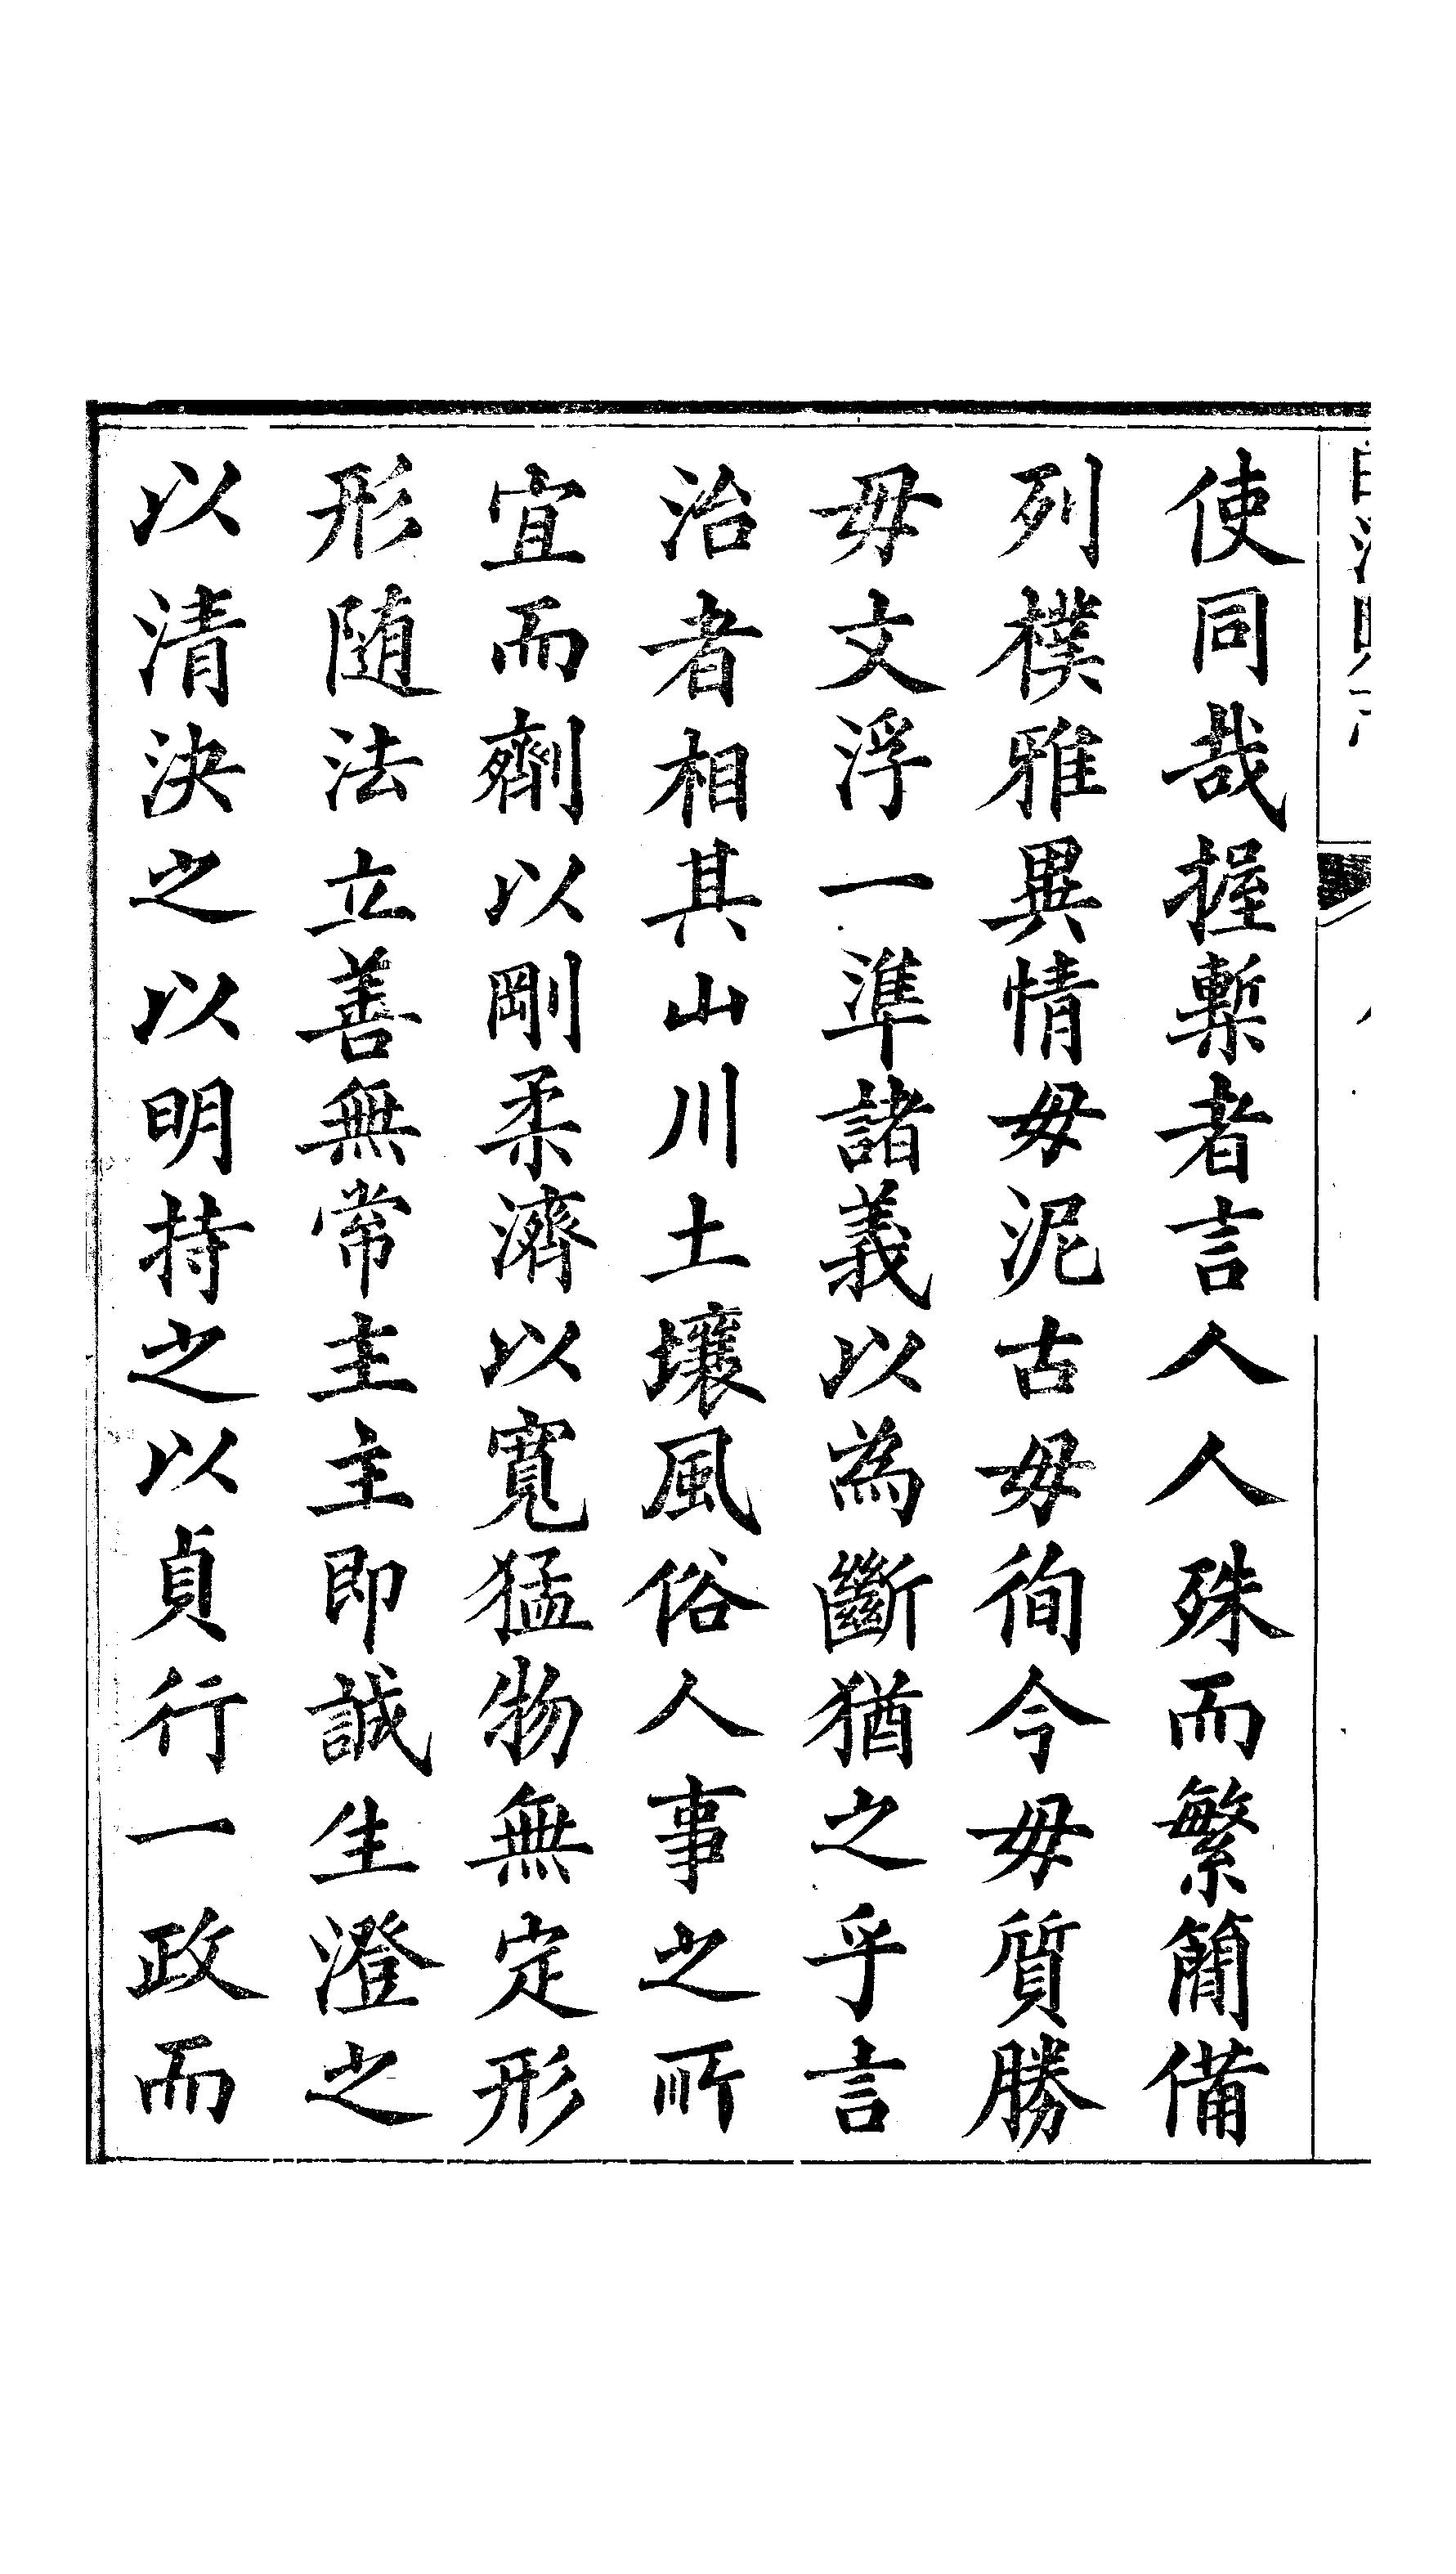 使同哉握槧者言人人殊而繁簡備
列樸雅異情毋泥古毋徇今毋質勝
毋文浮一準諸義以為斷猶之乎言
治者相其山川土壤風俗人事之所
宜而劑以剛柔濟以寬猛物無定形
形随法立善無常主主即誠生澄之
以清決之以明持之以貞行一政而